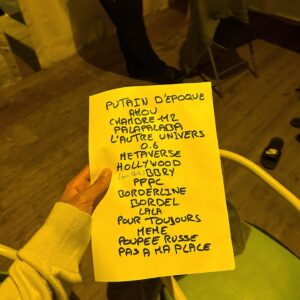 PUTAIN D'EPOQUE
AMOU
CHAMBRE 112
PALAPALABA
L'AUTRE UNIVERS
0.6
METAVERSE
HOLLYWOOD
BBRY
PFPC
BORDERLINE
BORDEL
LALA
POUR TOUJOURS
MEME
POUPEE RUSSE
PAS A MA PLACE